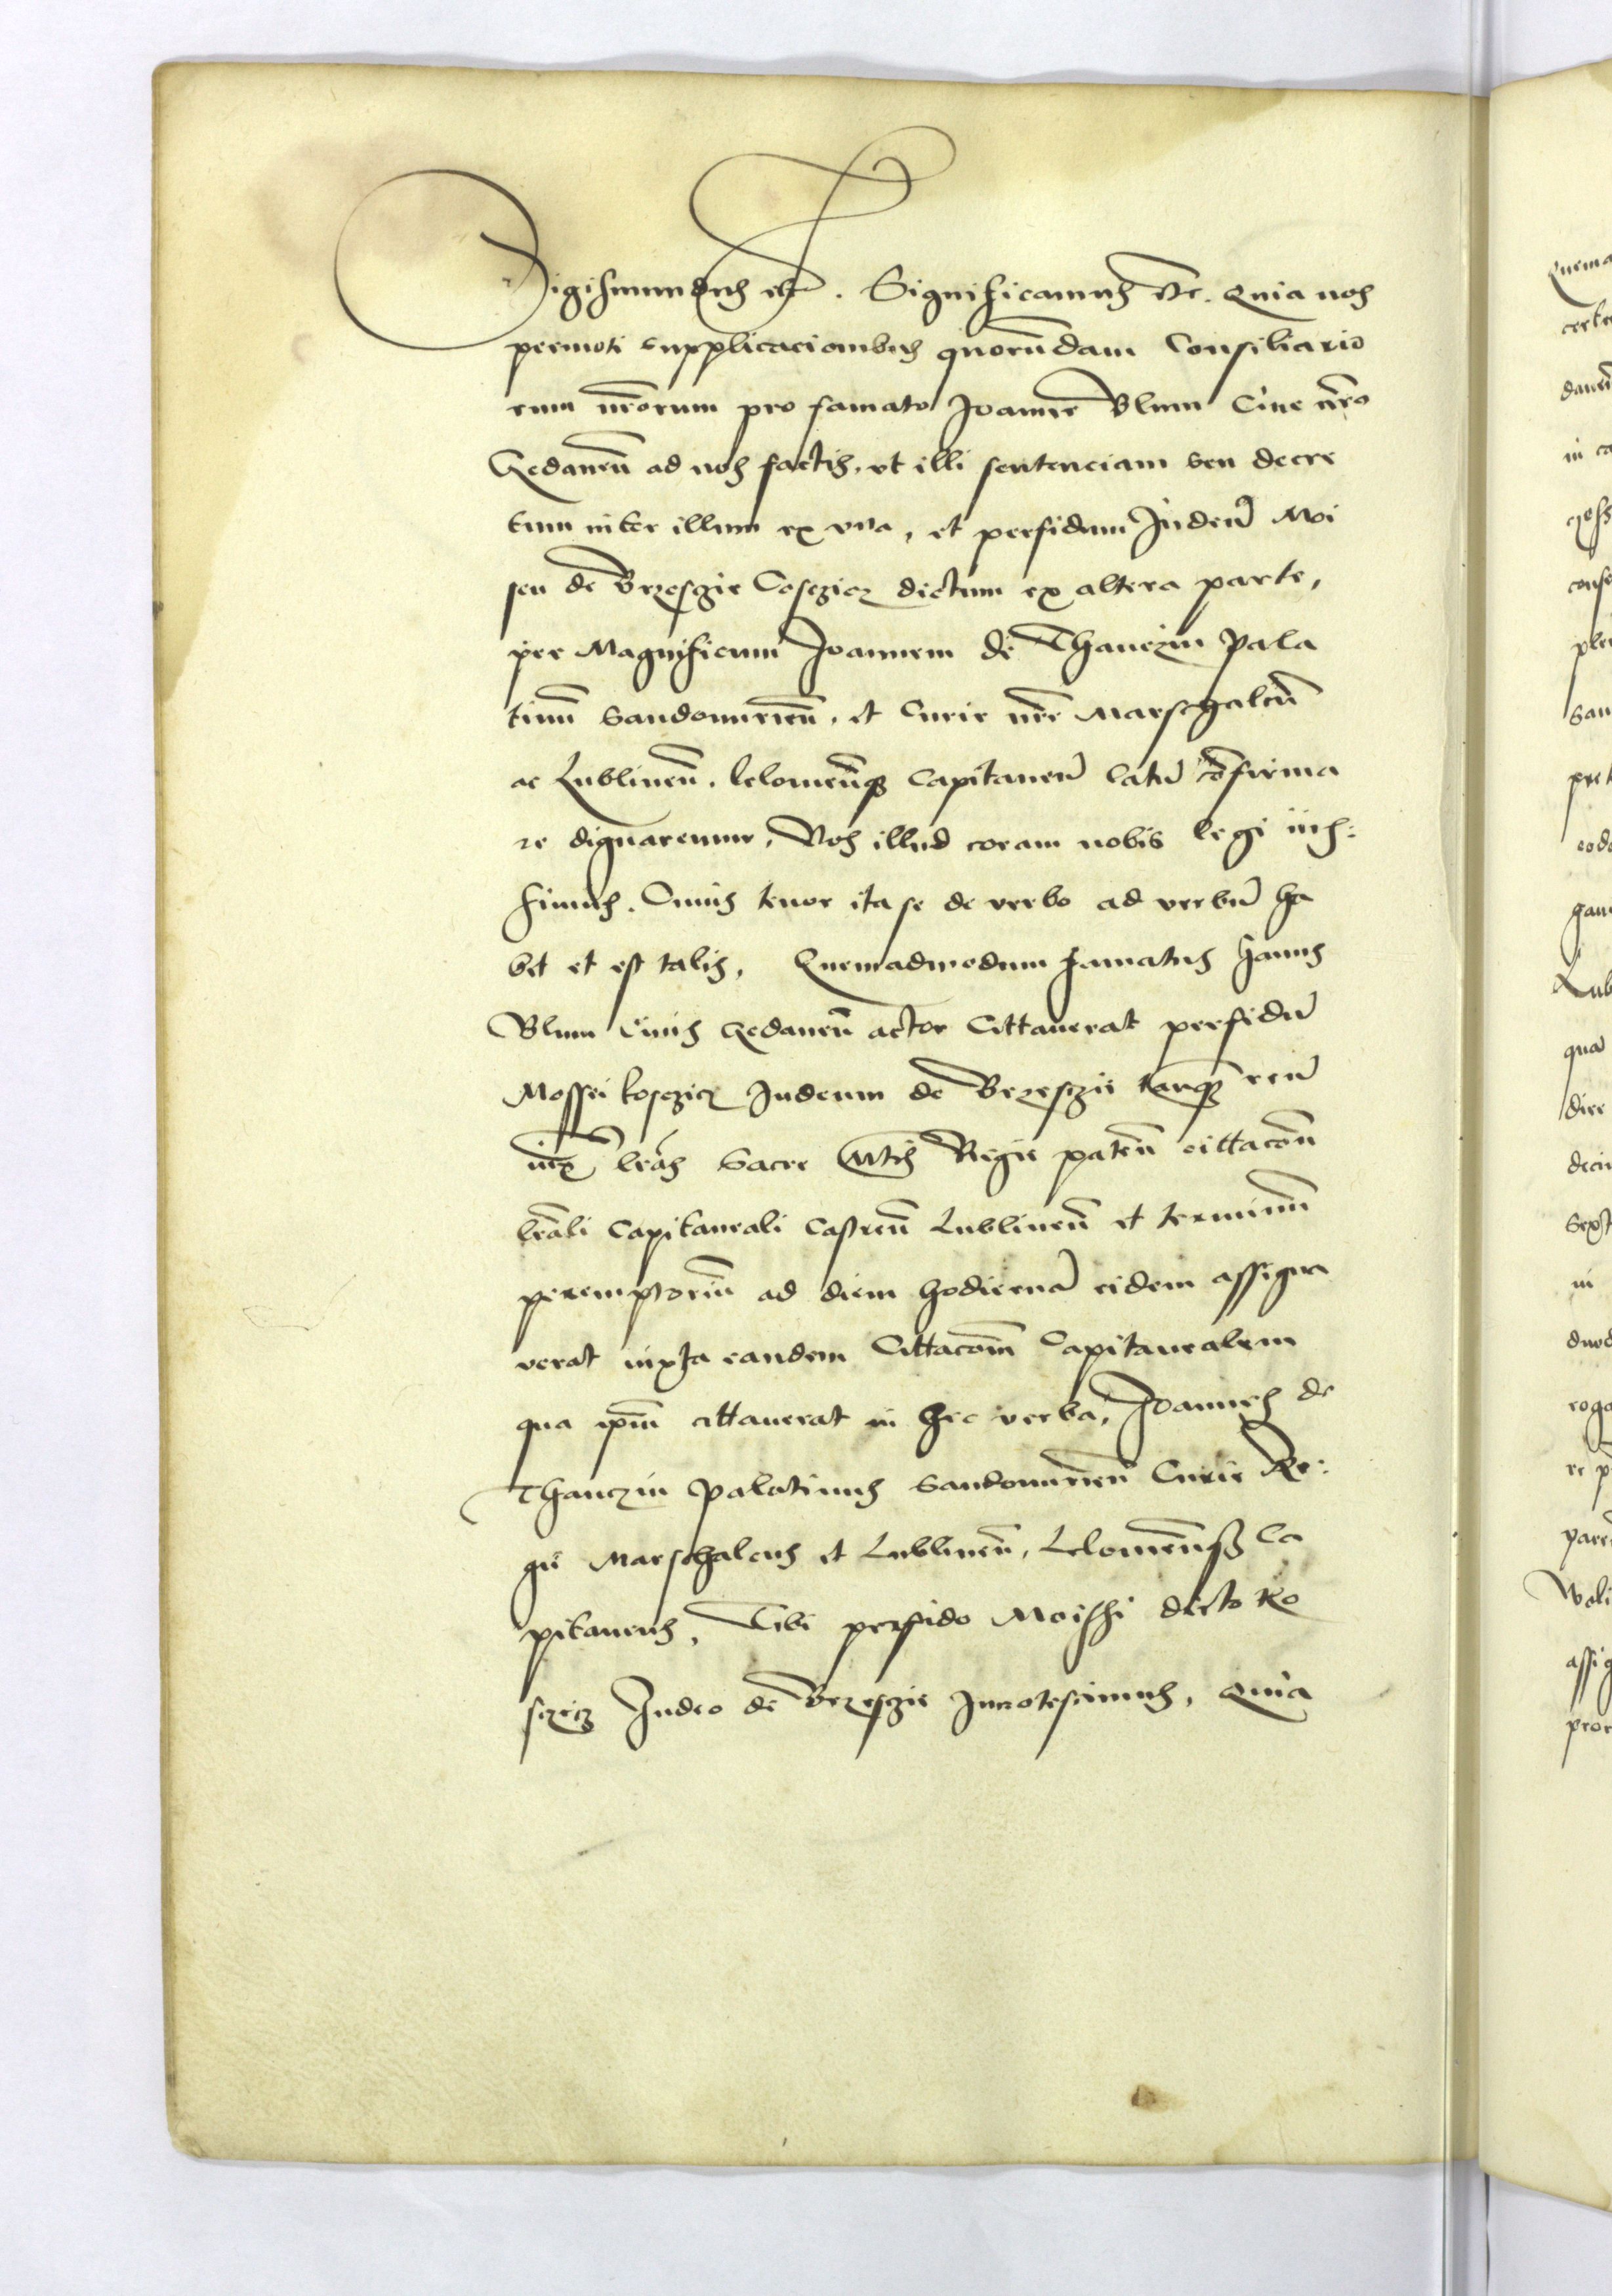 Sigismundus etc. Significamus etc. Quia nos
permoti supplicacionibus quorūdam Consiliario
rum nrōrum pro famato Joanne Blum Ciue nrō
Gedaneñ ad nos factis, vt illi sentenciam seu decre
tum inter illum ex vna, et perfidum Judeū Moi
sen de Brzesczie Cosczicz dictum ex altera parte,
per Magnificum Joannem de Thanczin Pala
tinū Sandomirieñ, et Curie nrē Marschalcū
ac Lublineñ. leloweñqȝ Capitaneū latū cōfirma
re dignaremur, Nos illud coram nobis legi iūs:
simus. Cuius tenor ita se de verbo ad verbū ha
bet et est talis, Quemadmodum famatus hanns
Blum Ciuis Gedaneñ actor Cittauerat perfidū
Mossei kosczicz Judeum de Brzesczie tanqȝ reū
iux̄ lrās Sacre Mtis Regie pateñ cittacōn
lrāli Capitaneali Castreñ Lublineñ et terminū
peremptoriū ad diem hodiernā eidem assigna
verat iuxta eandem Cittacōm Capitanealem
qua ipm̄ cittauerat in hec verba, Joannes de
Thanczin Palatinus Sandomirieñ Curie Re:
gie Marschalcus et Lublineñ, Leloweñqȝ Ca
pitaneus, Tibi perfido Moisshi dicto Ko
sczicz Judeo de Brzesczie Innotescimus, Quia